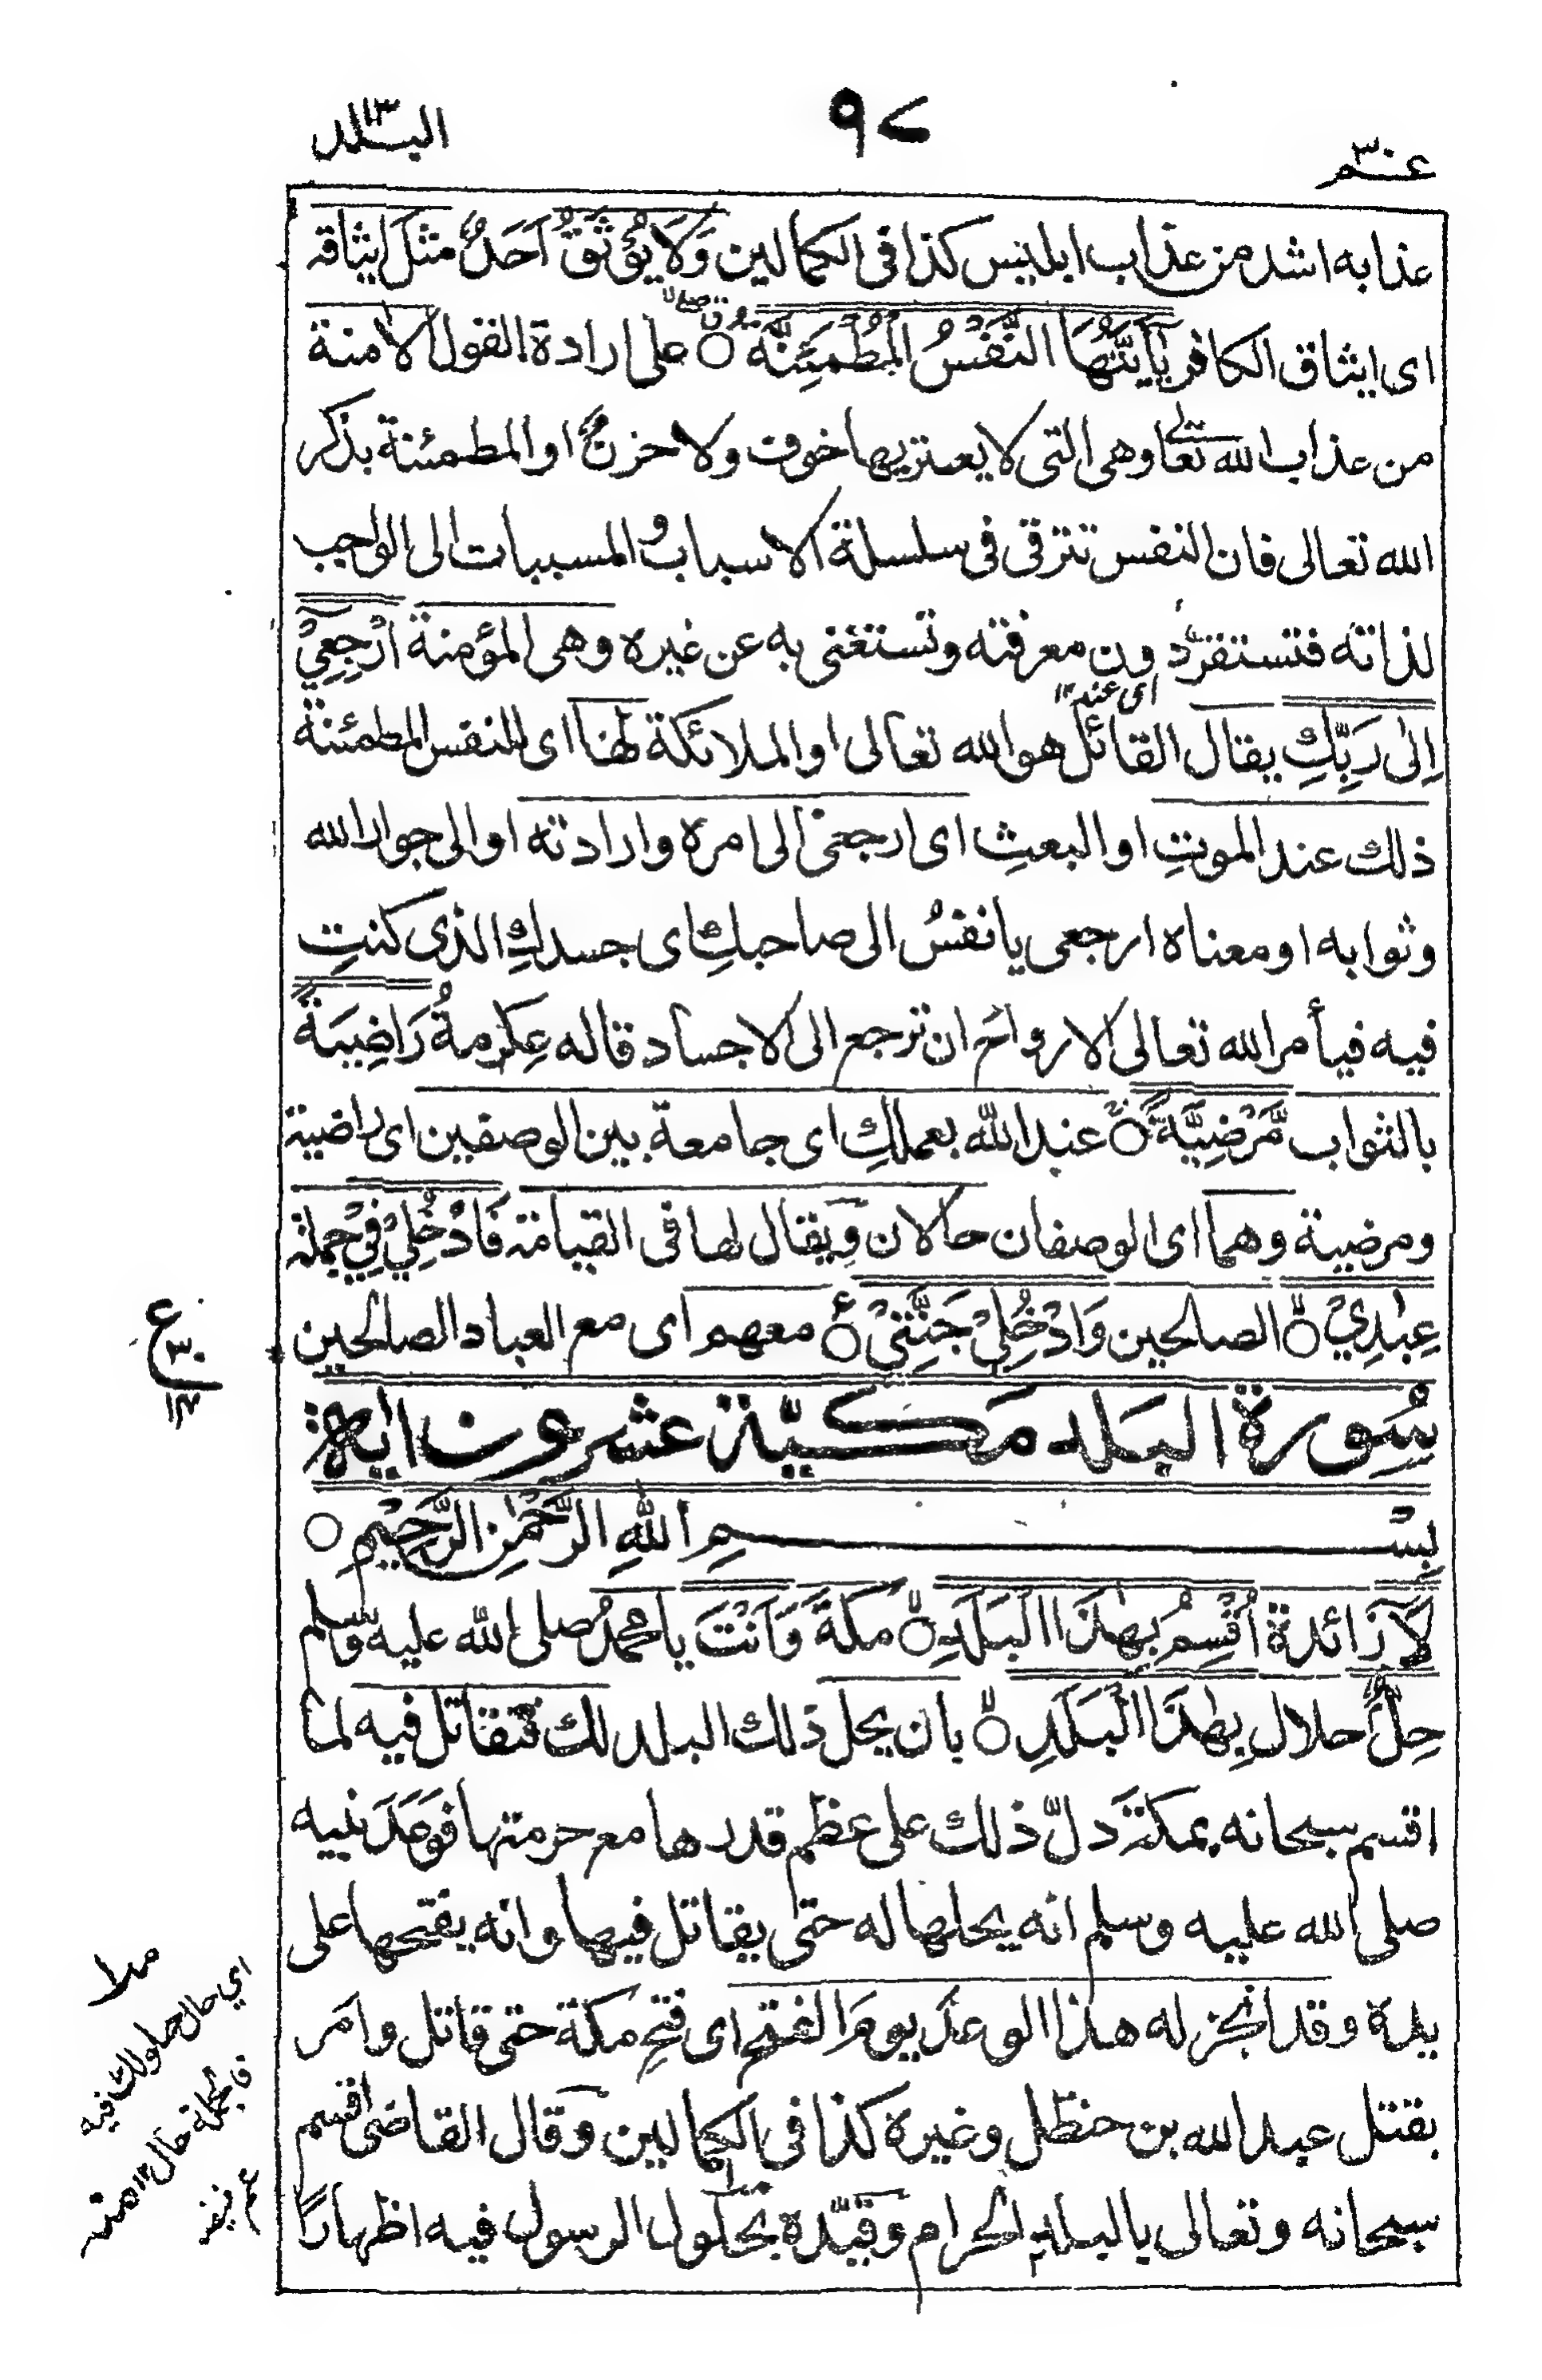 عم ٣٠
٩٧
البلد
عذابه اشد من عذاب ابليس كذا فى الكمالين وَلَا يُوْثَقُ اَحَدٌ مثل ايثاقه
اى ايثاق الكافر يٰٓاَيَّتُهَا النَّفْسُ الْمُطْمَئِنَّةُ ○ على ارادة القول الامنة
من عذاب الله تعا وهى التى لا يعتريها خوف ولا حزنٌ او المطمئنة بذكر
الله تعالى فان النفس تترقى فى سلسلة الاسباب و المسببات الى الواجب
لذاته فتستقر دون معرفته وتستغنى به عن غيره وهى المؤمنة ارْجِعِيْٓ
اى عند ١٢
اِلٰى رَبِّكِ يقال القائل هو الله تعالى او الملائكة لها اى للنفس المطمئنة
ذلك عند الموتِ او البعثِ اى ارجعى الى امره وارادته او الى جوار الله
وثوابه او معناه ارجعى يا نفسُ الى صاحبكِ اى جسدكِ الذى كنتِ
فيه فيأمر الله تعالى الارواح ان ترجع الى الاجساد قاله عِكرمةُ رَاضِيَةً
بالثواب مَّرْضِيَّةً ○ عند الله بعملكِ اى جامعة بين الوصفين اى راضية
ومرضية وهما اى الوصفان حالان وَيقال لها فى القيامة فَادْخُلِيْ فِيْ جملة
عِبٰدِيْ ○ الصالحين وَادْخُلِيْ جَنَّتِيْ ○ معهم اى مع العباد الصالحين
ع
٣٠
١٤
سُورة البَلد مَكيّة عشرون اية
بِسْمِ اللهِ الرَّحْمٰنِ الرَّحِيْمِ ○
لَآ زائدة اُقْسِمُ بِهٰذَا الْبَلَدِ ○ مكةَ وَاَنْتَ يا محمدُ صلى الله عليه وسلم
حِلٌّ حلال بِهٰذَا الْبَلَدِ ○ بان يحل ذلك البلد لك فتقاتل فيه لما
اقسم سبحانه بمكةَ دلّ ذلك على عظم قدرها مع حرمتها فوَعَدَ نبيه
صلى الله عليه وسلم انه يحلها له حتى يقاتل فيها وانه يفتحها على
يده وقد انجز له هذا الوعدَ يومَ الفتح اى فتحِ مكة حتى قاتل وامَر
بقتل عبد الله بن حنظل وغيره كذا فى الكمالين وَقال القاضى اقسم
سبحانه وتعالى بالبلد الحرام وقيّده بحلول الرسول فيه اظهارًا
اي حال حلولك فيه
فالجملة حال ١٢ منه